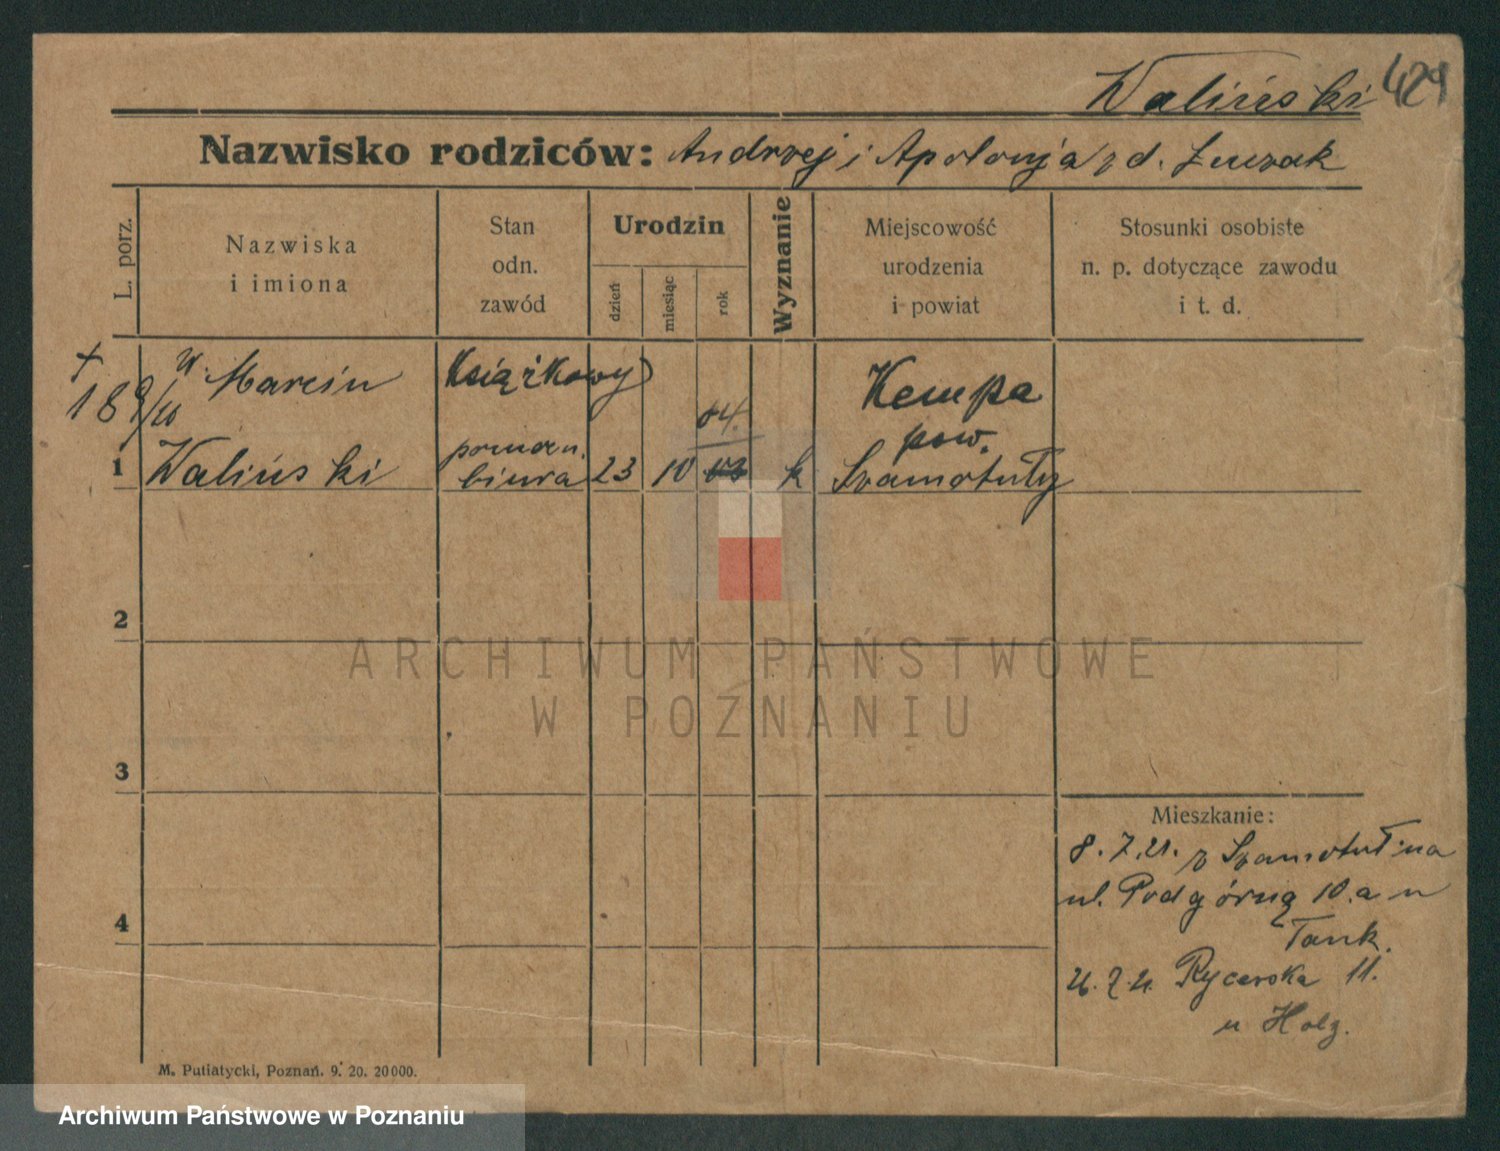 Waliński 429
Nazwisko rodziców: Andrzej i Apolonja z d.
L. porz.
Nazwiska
i imiona
Stan
odn.
zawód
Urodzin
dzień
miesiąc
rok
Wyznanie
Miejscowość
urodzenia
i powiat
Stosunki osobiste
n. p. dotyczące zawodu
i t. d.
+
Marcin
Książkowy
04.
Kempa
pow.
1 Waliński
biura 23 10 03 k Szamotuły
2
3
4
Mieszkanie:
8.7.21. z Szamotuł na
ul. Podgórną 10.a u
Tank.
Rycerska 11.
u Holz.
M. Putiatycki, Poznań. 9. 20. 20000.
ARCHIWUM PAŃSTWOWE
W POZNANIU
Archiwum Państwowe w Poznaniu